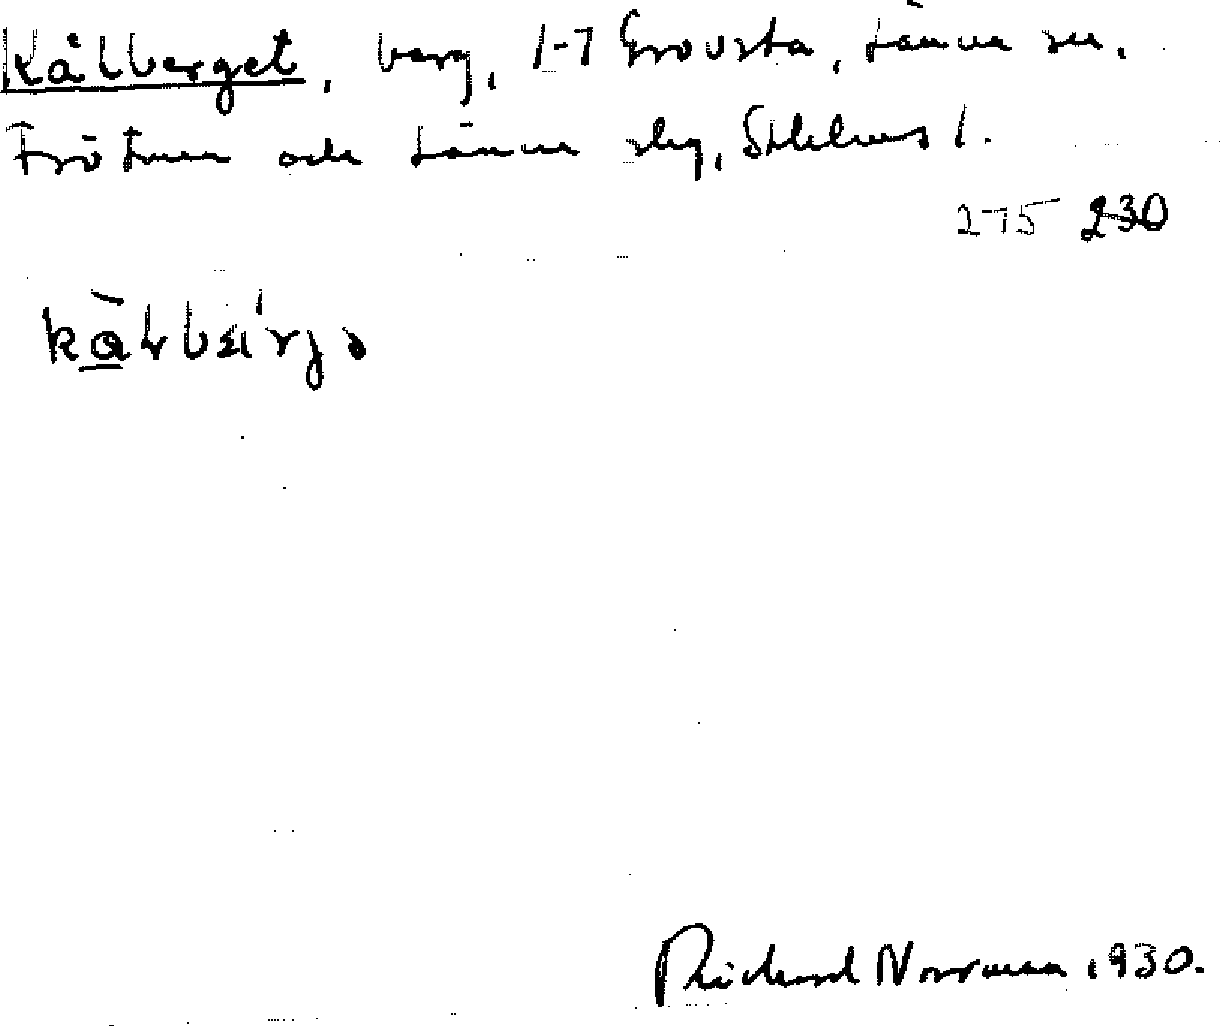 Kålberget, berg, 1-7 Grovsta, Länna sn.
Frötuna och Länna skg, Sthlms l.
275 230
Richard Norrman 1930.